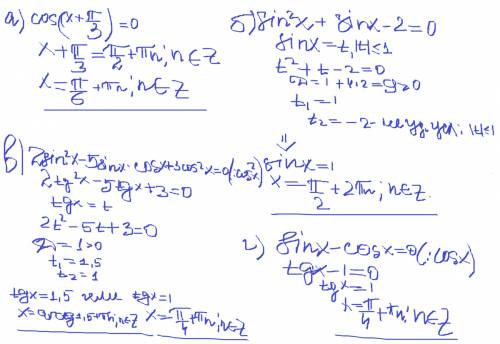 а) cos(x+π/3)=0
x+π/3=π/2+πn, n∈Z
x=π/6+πn, n∈Z
б) sin²x+sinx-2=0
sinx=t, |t|≤1
t²+t-2=0
D=1+4·2=9>0
t₁=1
t₂=-2- не уд. усл. |t|≤1
⇓
sinx=1
x=π/2+2πn, n∈Z.
в) 2sin²x-5sinx·cosx+3cos²x=0(:cos²x)
2tg²x-5tgx+3=0
tgx=t
2t²-5t+3=0
D=1>0
t₁=1,5
t₂=1
tgx=1,5 или tgx=1
x=arctg1,5+πn, n∈Z x=π/4+πn, n∈Z
г) sinx-cosx=0(:cosx)
tgx-1=0
tgx=1
x=π/4+πn, n∈Z